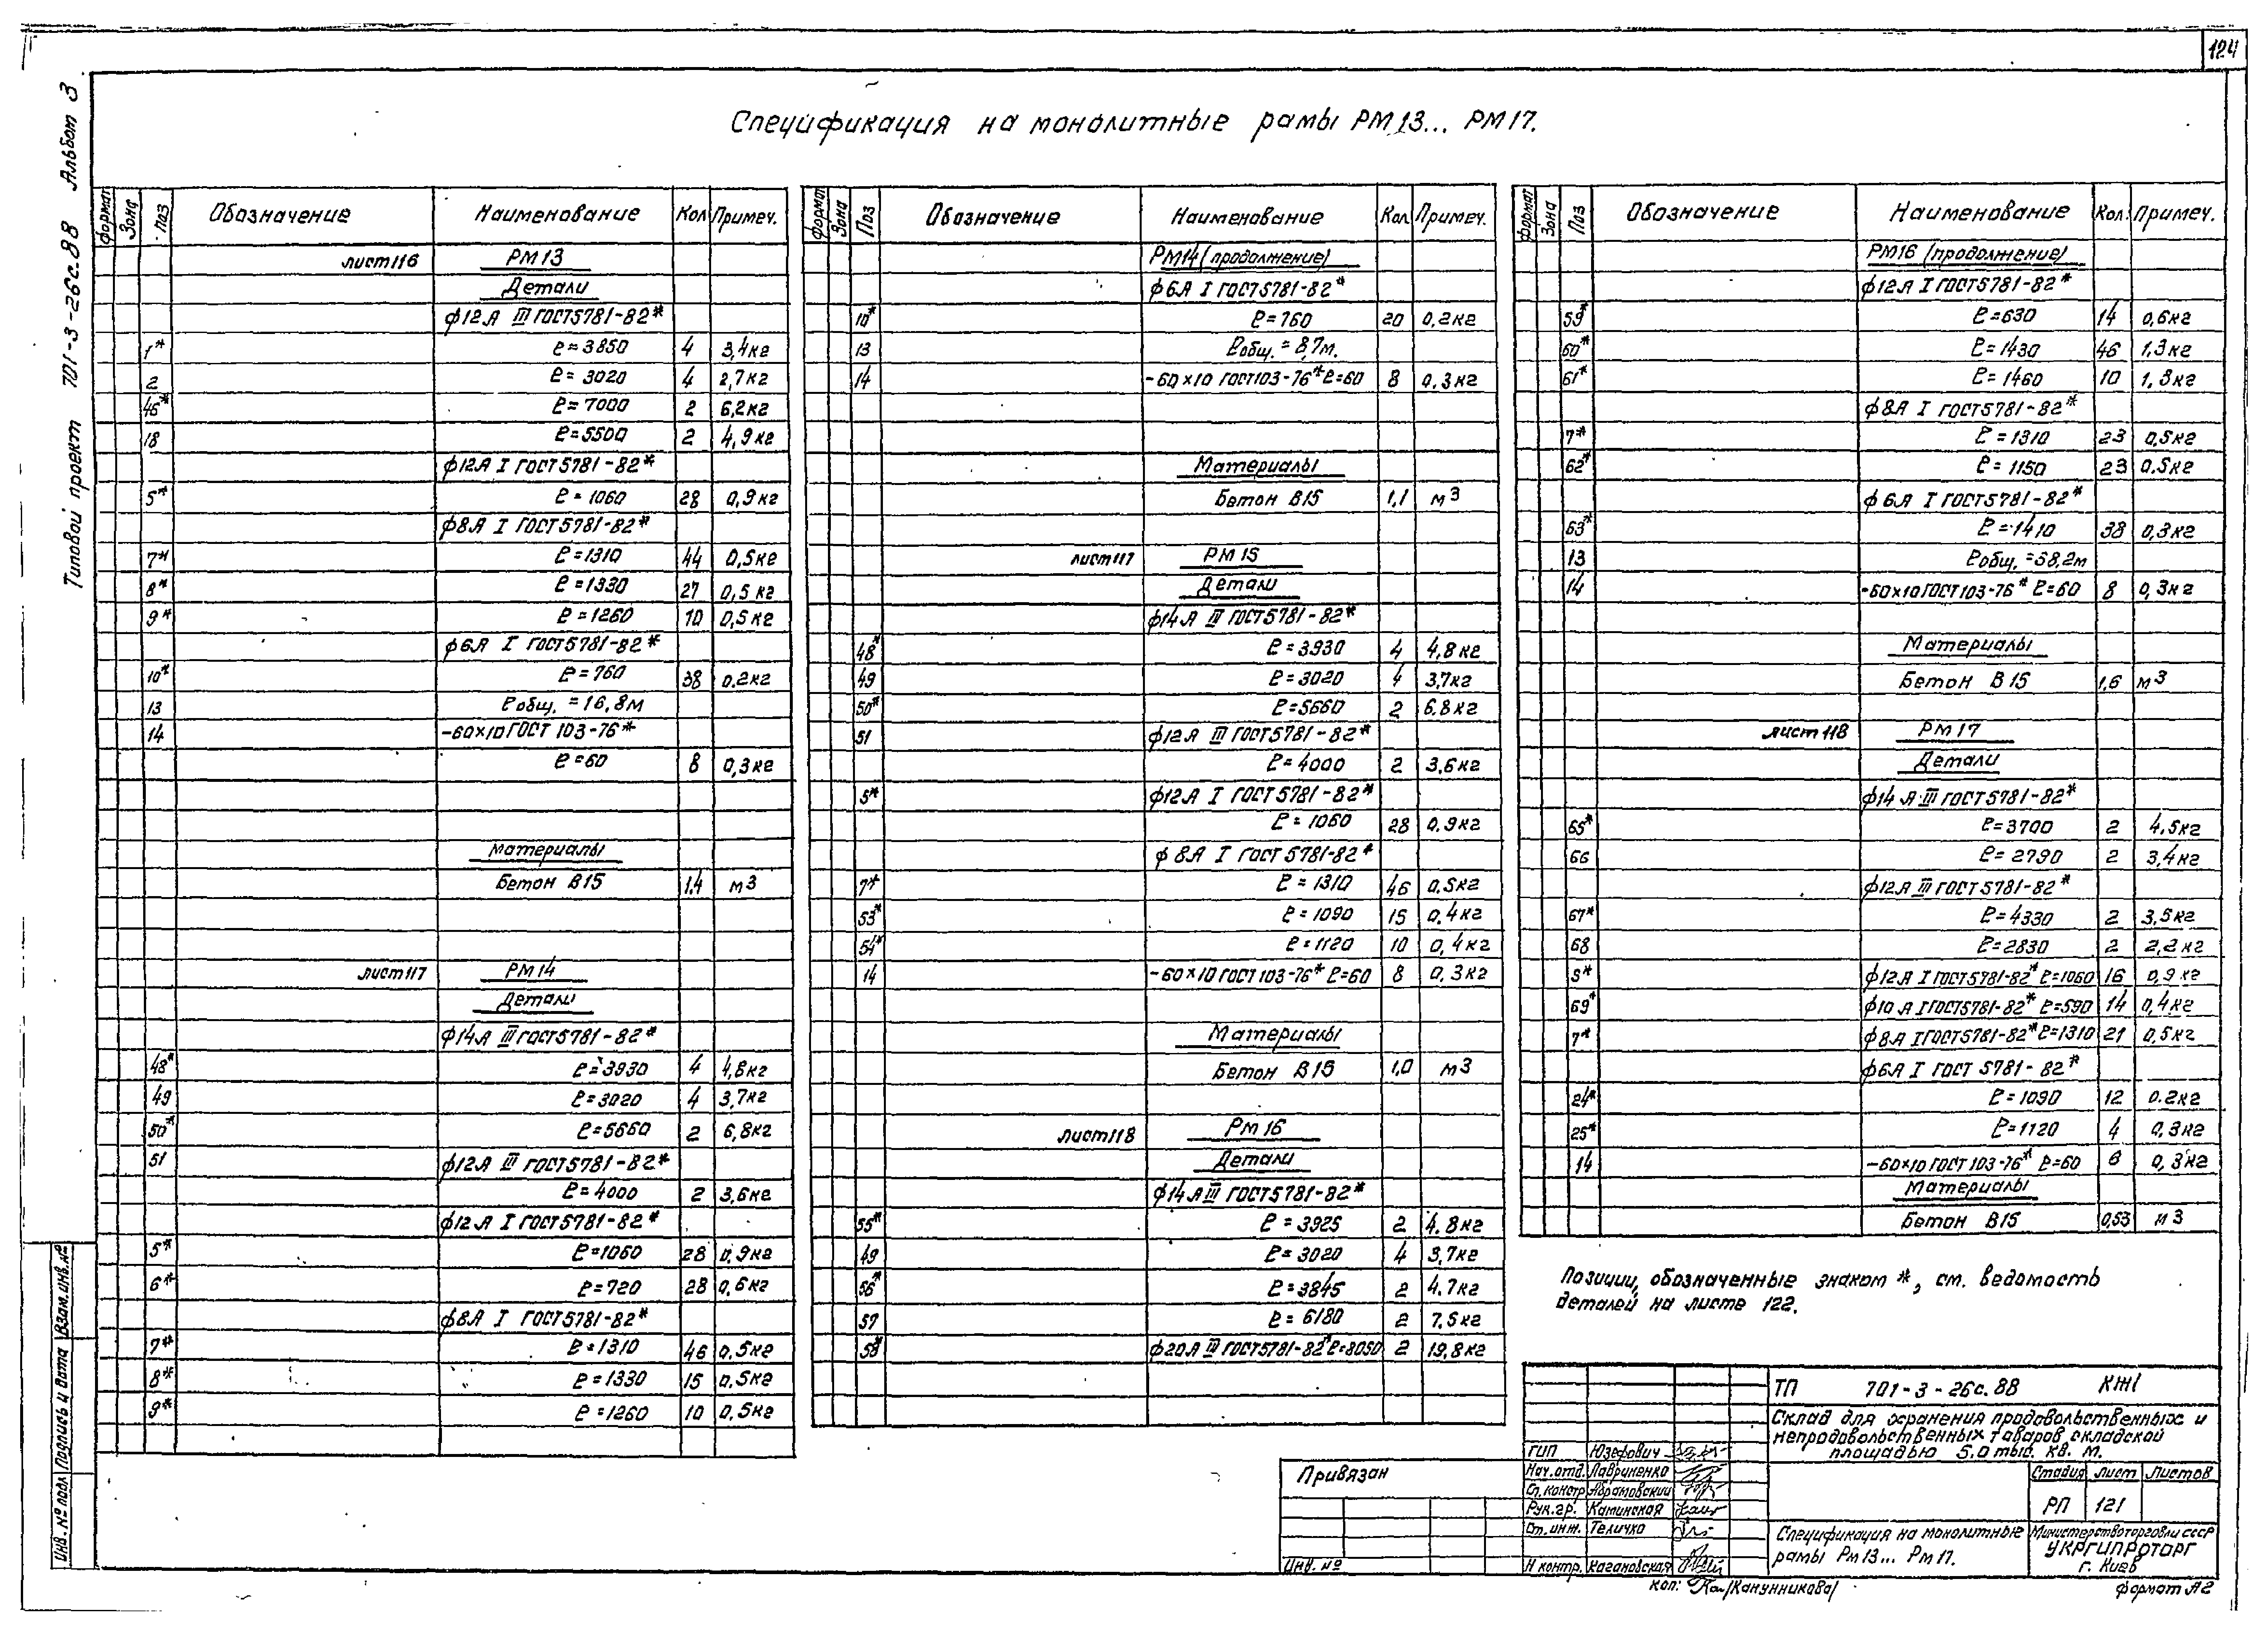 124
Типовой проект 701-3-26с.88 Альбом 3
Спецификация на монолитные рамы РМ13... РМ17.
Формат Зона Поз Обозначение Наименование Кол Примеч.
лист 116 РМ13
Детали
ф12А III ГОСТ5781-82*
1* ℓ=3850 4 3,4кг
2 ℓ=3020 4 2,7кг
46* ℓ=7000 2 6,2кг
18 ℓ=5500 2 4,9кг
ф12А I ГОСТ5781-82*
5* ℓ=1060 28 0,9кг
ф8А I ГОСТ5781-82*
7* ℓ=1310 44 0,5кг
8* ℓ=1330 27 0,5кг
9* ℓ=1260 10 0,5кг
ф6А I ГОСТ5781-82*
10* ℓ=760 38 0,2кг
13 ℓобщ.=16,8м
14 -60×10 ГОСТ 103-76*
ℓ=60 8 0,3кг
Материалы
Бетон В15 1,4 м3
лист 117 РМ14
Детали
ф14А III ГОСТ5781-82*
48* ℓ=3930 4 4,8кг
49 ℓ=3020 4 3,7кг
50* ℓ=5660 2 6,8кг
51 ф12А III ГОСТ5781-82*
ℓ=4000 2 3,6кг
ф12А I ГОСТ5781-82*
5* ℓ=1060 28 0,9кг
6* ℓ=720 28 0,6кг
ф8А I ГОСТ5781-82*
7* ℓ=1310 46 0,5кг
8* ℓ=1330 15 0,5кг
9* ℓ=1260 10 0,5кг
Формат Зона Поз Обозначение Наименование Кол. Примеч.
РМ14 (продолжение)
ф6А I ГОСТ5781-82*
10* ℓ=760 20 0,2кг
13 ℓобщ.=8,7м.
14 -60×10 ГОСТ103-76* ℓ=60 8 0,3кг
Материалы
Бетон В15 1,1 м3
лист 117 РМ15
Детали
ф14А III ГОСТ5781-82*
48* ℓ=3930 4 4,8кг
49 ℓ=3020 4 3,7кг
50* ℓ=5660 2 6,8кг
51 ф12А III ГОСТ5781-82*
ℓ=4000 2 3,6кг
5* ф12А I ГОСТ5781-82*
ℓ=1060 28 0,9кг
ф8А I ГОСТ5781-82*
7* ℓ=1310 46 0,5кг
53* ℓ=1090 15 0,4кг
54* ℓ=1120 10 0,4кг
14 -60×10 ГОСТ103-76* ℓ=60 8 0,3кг
Материалы
Бетон В15 1,0 м3
лист 118 Рм16
Детали
ф14А III ГОСТ5781-82*
55* ℓ=3925 2 4,8кг
49 ℓ=3020 4 3,7кг
56* ℓ=3845 2 4,7кг
57 ℓ=6180 2 7,5кг
58* ф20А III ГОСТ5781-82* ℓ=8050 2 19,8кг
Формат Зона Поз Обозначение Наименование Кол. Примеч.
РМ16 (продолжение)
ф12А I ГОСТ5781-82*
59* ℓ=630 14 0,6кг
60* ℓ=1430 46 1,3кг
61* ℓ=1460 10 1,3кг
ф8А I ГОСТ5781-82*
7* ℓ=1310 23 0,5кг
62* ℓ=1150 23 0,5кг
ф6А I ГОСТ5781-82*
63* ℓ=1410 38 0,3кг
13 ℓобщ.=58,2м
14 -60×10 ГОСТ103-76* ℓ=60 8 0,3кг
Материалы
Бетон В15 1,6 м3
лист 118 РМ17
Детали
ф14А III ГОСТ5781-82*
65* ℓ=3700 2 4,5кг
66 ℓ=2790 2 3,4кг
ф12А III ГОСТ5781-82*
67* ℓ=4330 2 3,5кг
68 ℓ=2830 2 2,2кг
5* ф12А I ГОСТ5781-82* ℓ=1060 16 0,9кг
69* ф10А I ГОСТ5781-82* ℓ=590 14 0,4кг
7* ф8А I ГОСТ5781-82* ℓ=1310 21 0,5кг
ф6А I ГОСТ 5781-82*
24* ℓ=1090 12 0,2кг
25* ℓ=1120 4 0,3кг
14 -60×10 ГОСТ103-76* ℓ=60 6 0,3кг
Материалы
Бетон В15 0,53 м3
Позиции, обозначенные знаком *, см. ведомость
деталей на листе 122.
ТП 701-3-26с.88 КЖ1
Склад для хранения продовольственных и
непродовольственных товаров складской
площадью 5,0 тыс. кв. м.
ГИП Юзефович
Нач.отд. Лавриненко
Гл.констр Абрамовский
Рук.гр. Каминская
Ст.инж. Теличко
Н контр. Кагановская
Стадия Лист Листов
РП 121
Спецификация на монолитные
рамы Рм13... Рм17.
Министерство торговли СССР
УКРГИПРОТОРГ
г. Киев
Привязан
Инв. №
Коп: /Канунникова/
формат А2
Инв. № подл Подпись и дата Взам.инв.№